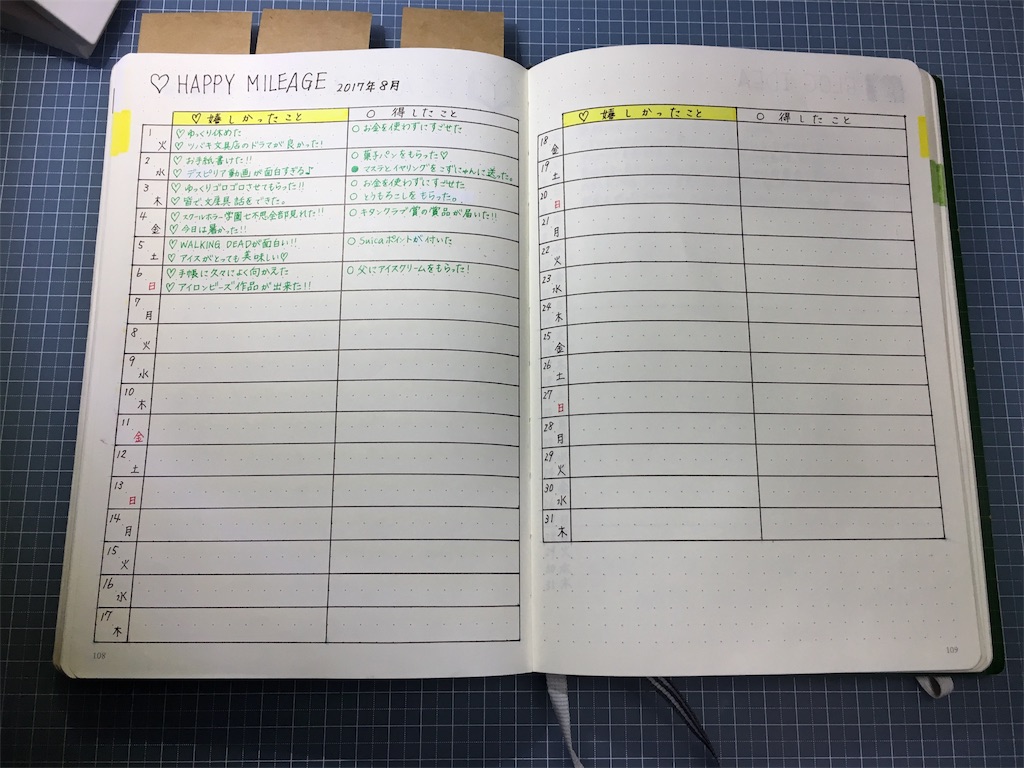 ♡ HAPPY MILEAGE 2017年8月
♡ 嬉しかったこと ○ 得したこと
1 火
♡ ゆっくり休めた
♡ ツバキ文具店のドラマが良かった!
○ お金を使わずにすごせた
2 水
♡ お手紙書けた!!
♡ デスピリア動画が面白すぎる♪
○ 菓子パンをもらった♡
● マステとイヤリングをこずにゃんに送った。
3 木
♡ ゆっくりゴロゴロさせてもらった!!
♡ 皆で文房具話をできた。
○ お金を使わずにすごせた
○ とうもろこしをもらった。
4 金
♡ スクールホラー学園七不思全部見れた!!
♡ 今日は暑かった!!
○ キタンクラブ賞の賞品が届いた!!
5 土
♡ WALKING DEADが面白い!!
♡ アイスがとっても美味しい♡
○ Suicaポイントが付いた
6 日
♡ 手帳に久々によく向かえた
♡ アイロンビーズ作品が出来た!!
○ 父にアイスクリームをもらった!
7 月
8 火
9 水
10 木
11 金
12 土
13 日
14 月
15 火
16 水
17 木
108
♡ 嬉しかったこと ○ 得したこと
18 金
19 土
20 日
21 月
22 火
23 水
24 木
25 金
26 土
27 日
28 月
29 火
30 水
31 木
109